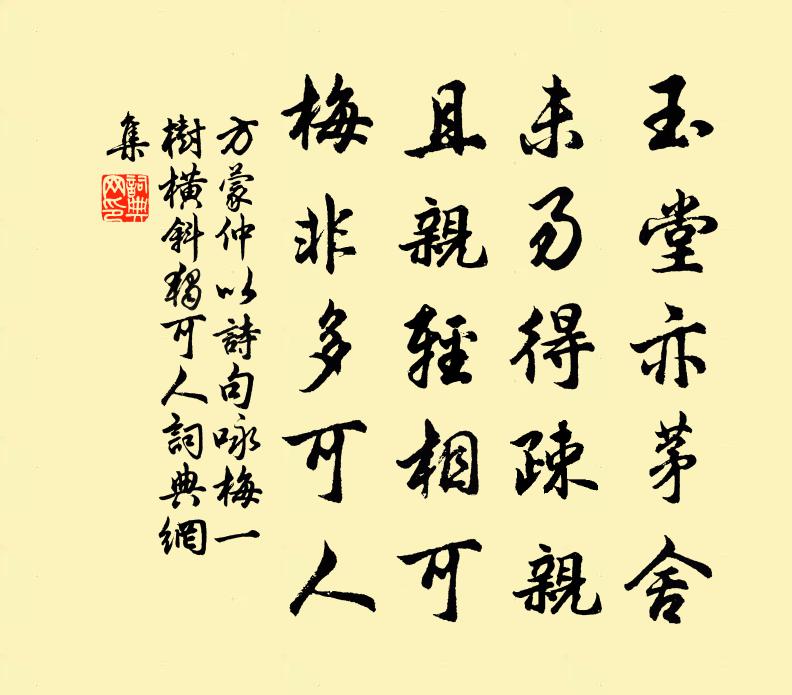 玉堂亦茅舍
未易得疎親
且親輕相可
梅非多可人
方蒙仲以詩句咏梅一
樹橫斜獨可人詞典網
集
詞典
网印